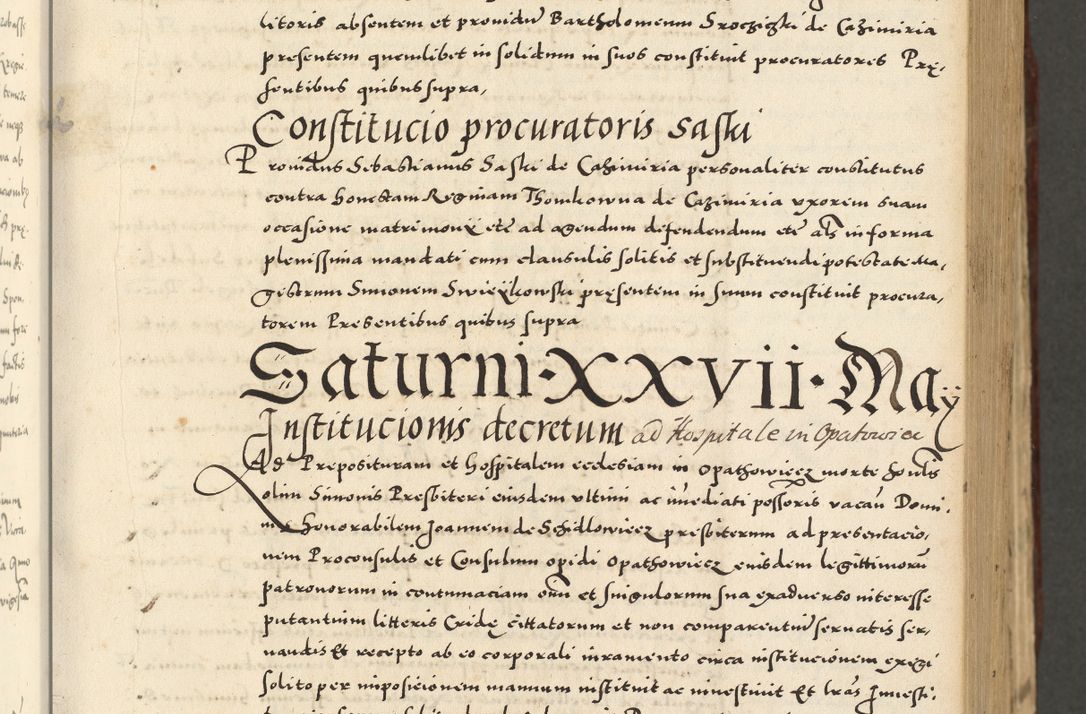 litoris absentem et providum Bartholomeum Sroczigski de Cazimiria
presentem quemlibet in solidum in suos constituit procuratores Prę,
sentibus quibus supra,
Constitucio procuratoris Saski
Providus Sebastianus Saski de Cazimiria personaliter constitutus
contra honestam Reginam Thomkowna de Cazimiria uxorem suam
occasione matrimonii etc ad agendum defendendum etc als in forma
plenissima mandati cum clausulis solitis et substituendi potestate Ma,
gistrum Simonem Swiezikowski pręsentem in suum constituit procura,
torem Presentibus quibus supra
Saturni · XXVII · May
Institucionis decretum ad Hospitale in Opatowiec
Ad Preposituram et hospitalem ecclesiam in Opathowiecz morte
olim Simonis Presbiteri eiusdem ultimi ac immediati possoris vacan Domi,
nus honorabilem Joannem de Schidlowiecz presbiterum ad presentacio,
nem Proconsulis et Consulum opidi Opathowiecz eiusdem legittimorum
patronorum in contumaciam omn et singulorum sua exadverso interesse
putantium litteris Cridę cittatorum et non comparentium servatis ser,
vandis Et recepto ab eo corporali iuramento circa institucionem exigi
solito per imposicionem manuum instituit ac investivit Et lras Investi,